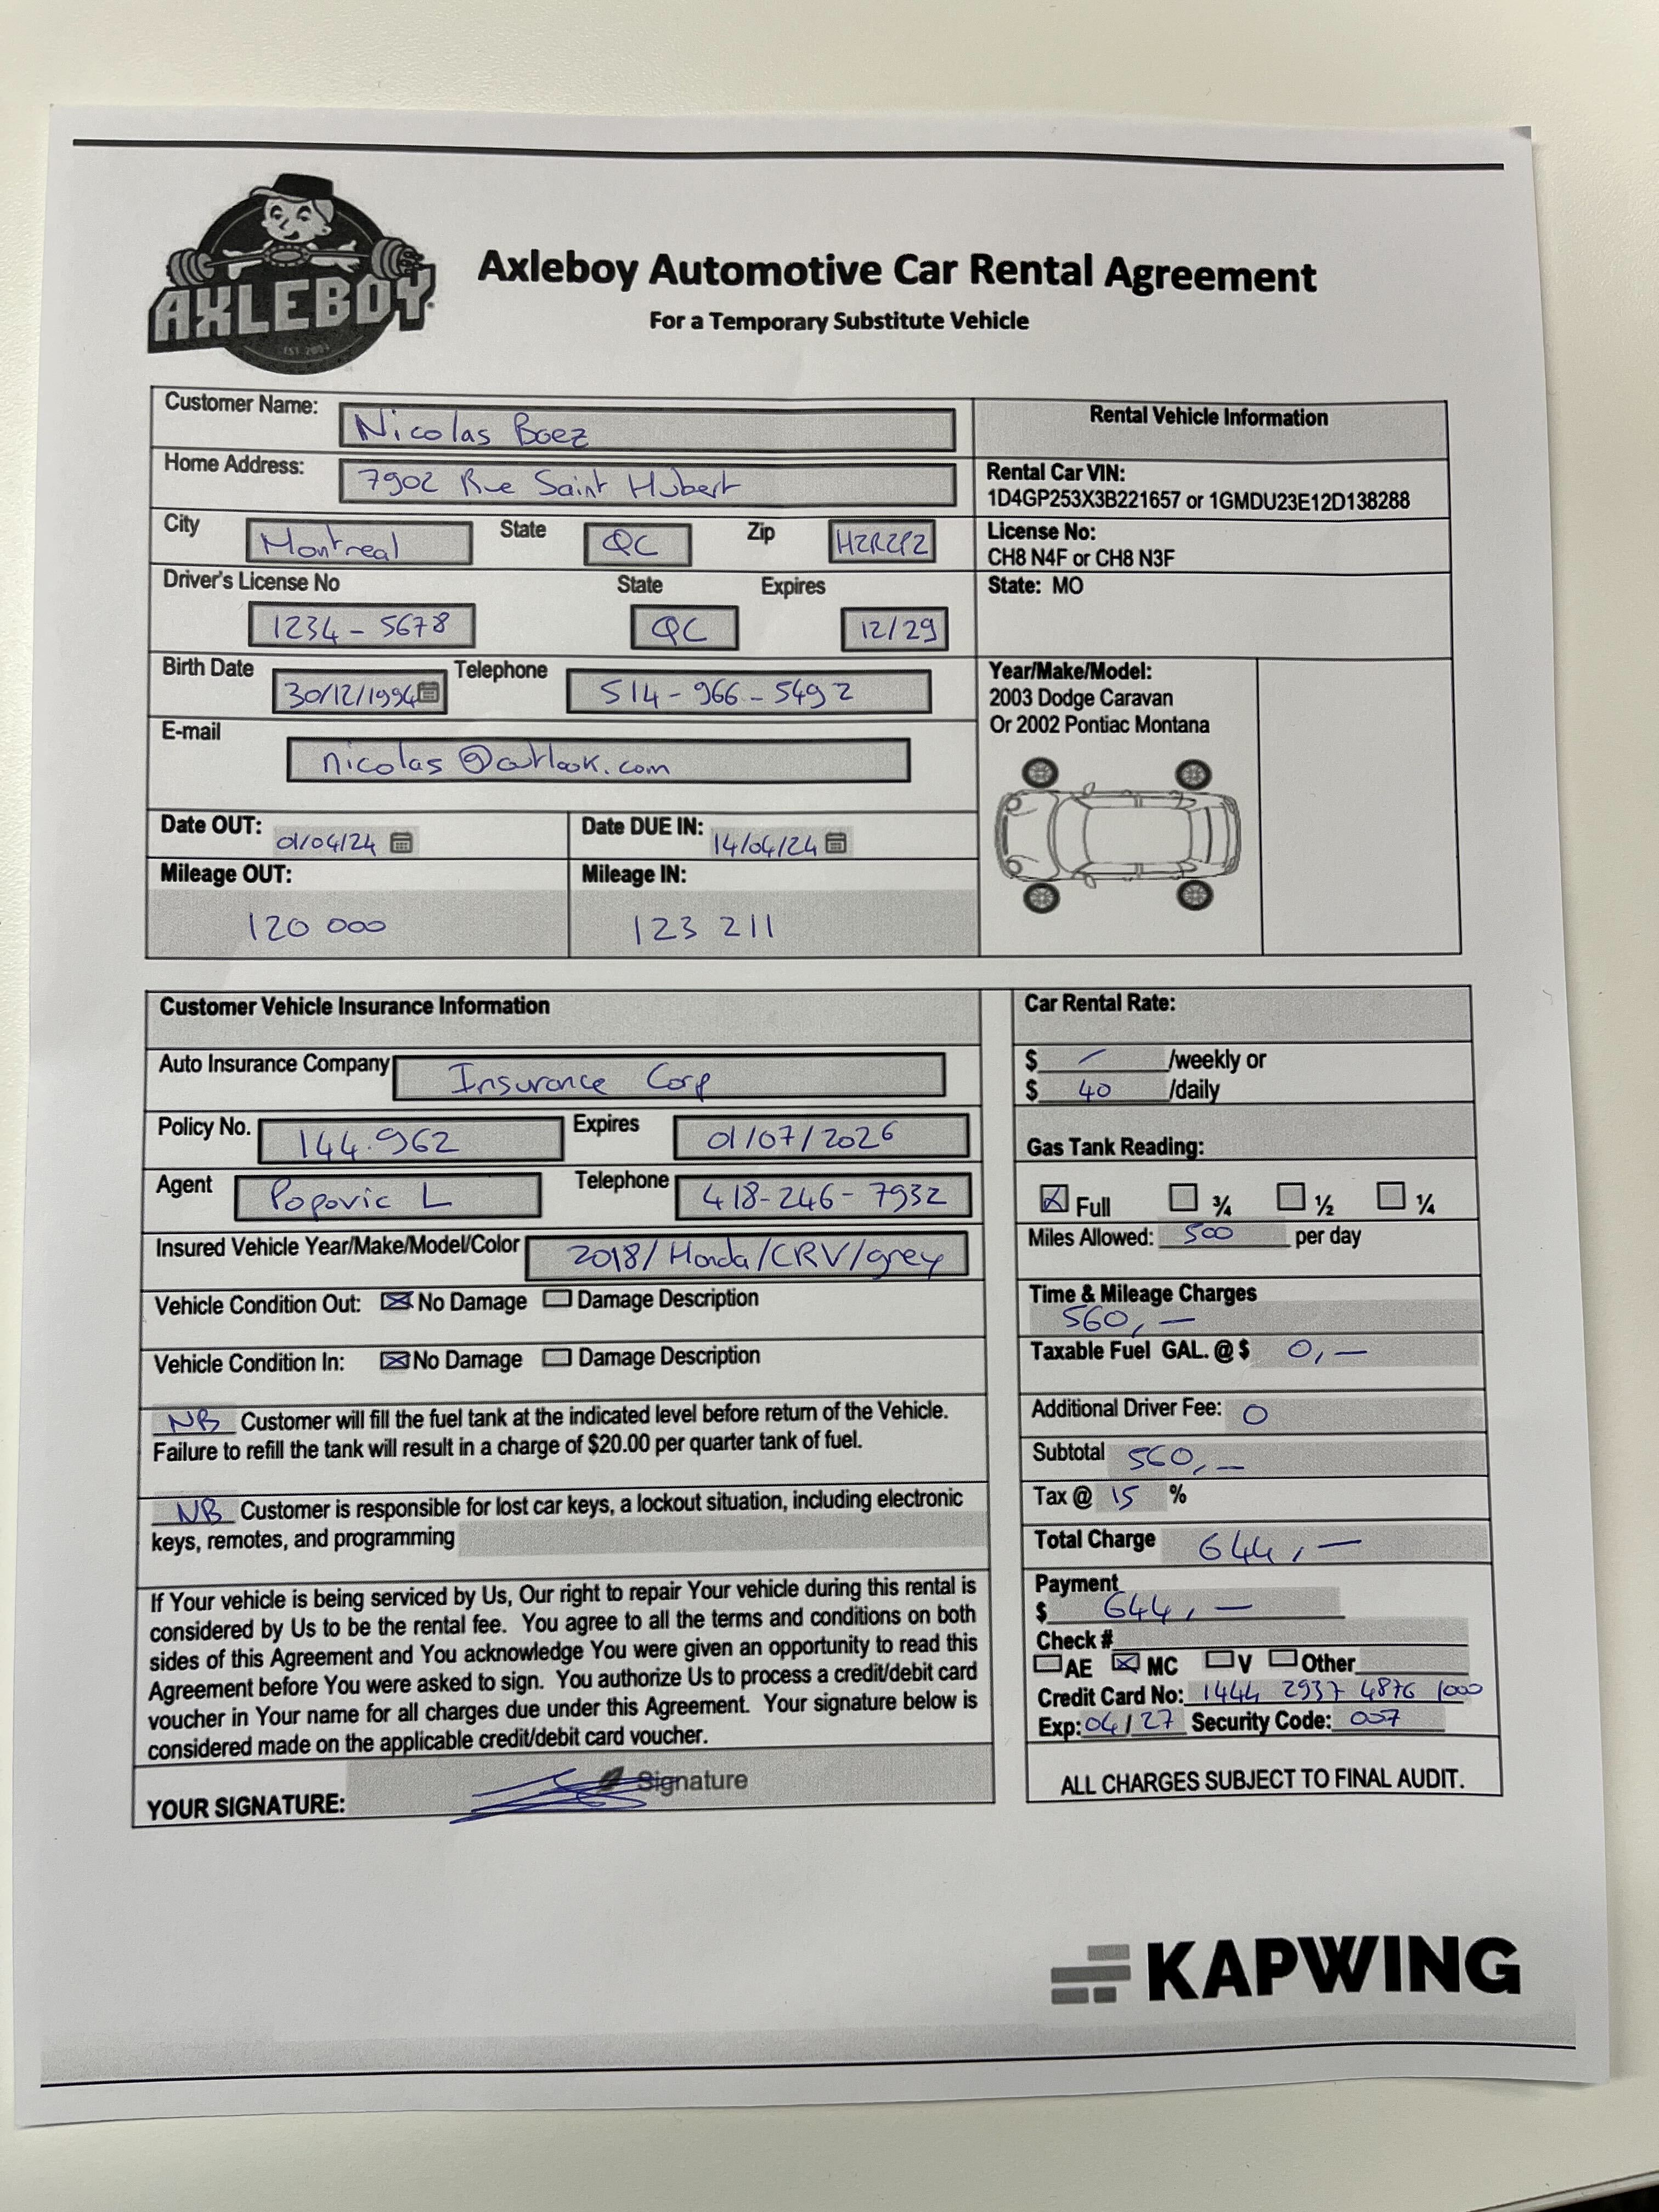 AXLEBOY
EST 2003
Axleboy Automotive Car Rental Agreement
For a Temporary Substitute Vehicle
Customer Name: Nicolas Baez
Home Address: 7902 Rue Saint Hubert
City Montreal State QC Zip H2R2P2
Driver's License No State Expires
1234-5678 QC 12/29
Birth Date 30/12/1994 Telephone 514-966-5492
E-mail
nicolas@outlook.com
Date OUT: 01/04/24 Date DUE IN: 14/04/24
Mileage OUT: Mileage IN:
120 000 123 211
Rental Vehicle Information
Rental Car VIN:
1D4GP253X3B221657 or 1GMDU23E12D138288
License No:
CH8 N4F or CH8 N3F
State: MO
Year/Make/Model:
2003 Dodge Caravan
Or 2002 Pontiac Montana
Customer Vehicle Insurance Information
Auto Insurance Company Insurance Corp
Policy No. 144.962 Expires 01/07/2026
Agent Popovic L Telephone 418-246-7932
Insured Vehicle Year/Make/Model/Color 2018/Honda/CRV/grey
Vehicle Condition Out: No Damage Damage Description
Vehicle Condition In: No Damage Damage Description
NB Customer will fill the fuel tank at the indicated level before return of the Vehicle.
Failure to refill the tank will result in a charge of $20.00 per quarter tank of fuel.
NB Customer is responsible for lost car keys, a lockout situation, including electronic
keys, remotes, and programming
If Your vehicle is being serviced by Us, Our right to repair Your vehicle during this rental is
considered by Us to be the rental fee. You agree to all the terms and conditions on both
sides of this Agreement and You acknowledge You were given an opportunity to read this
Agreement before You were asked to sign. You authorize Us to process a credit/debit card
voucher in Your name for all charges due under this Agreement. Your signature below is
considered made on the applicable credit/debit card voucher.
YOUR SIGNATURE: Signature
Car Rental Rate:
$ - /weekly or
$ 40 /daily
Gas Tank Reading:
Full ¾ ½ ¼
Miles Allowed: 500 per day
Time & Mileage Charges
560,-
Taxable Fuel GAL. @ $ 0,-
Additional Driver Fee: 0
Subtotal 560,-
Tax @ 15 %
Total Charge 644,-
Payment
$ 644,-
Check #
AE MC V Other
Credit Card No: 1444 2937 4876 1000
Exp: 04/27 Security Code: 007
ALL CHARGES SUBJECT TO FINAL AUDIT.
KAPWING